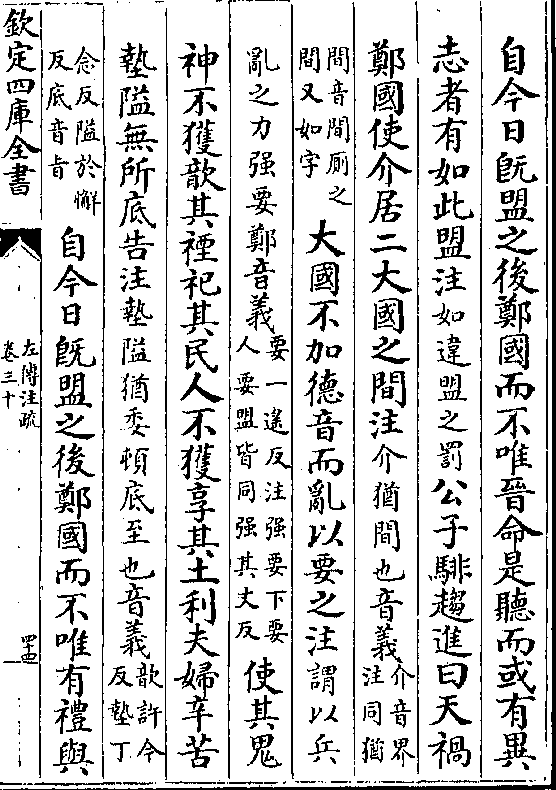 自今日既盟之後鄭國而不唯晉命是聽而或有異
志者有如此盟注如違盟之罰公子騑趨進曰天禍
鄭國使介居二大國之間注介猶間也音義介音界
注同猶
間音間厠之
間又如字大國不加德音而亂以要之注謂以兵
亂之力强要鄭音義要一遥反注强要下要
人要盟皆同强其丈反使其鬼
神不獲歆其禋祀其民人不獲享其土利夫婦辛苦
墊隘無所底告注墊隘猶委頓底至也音義歆許今
反墊丁
念反隘於懈
反底音旨自今日既盟之後鄭國而不唯有禮與
欽定四庫全書
左傳注疏
卷三十
四